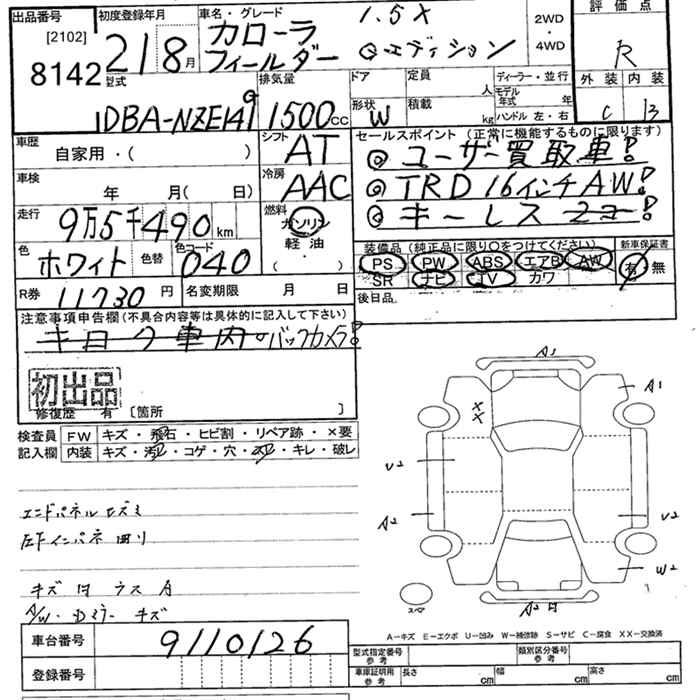 出品番号 [2102] 8142
初度登録年月 21/8月
車名・グレード カローラ フィールダー 1.5X Gエディション
2WD・4WD
評価点 R
外装 C 内装 B
型式 DBA-NZE141
排気量 1500cc
ドア 形状 W
定員 人
積載 kg
ディーラー・並行
モデル年式 年
ハンドル 左・右
車歴 自家用・( )
シフト AT
車検 年 月( 日)
冷房 AAC
走行 9万5千490km
燃料 ガソリン 軽油 ( ・ )
色 ホワイト 色替
色コード 040
R券 11730円
名変期限 月 日
セールスポイント (正常に機能するものに限ります)
◎ユーザー買取車!
◎TRD 16インチAW!
◎キーレス
装備品 (純正品に限り○をつけてください)
PS PW ABS エアB AW
SR ナビ TV カワ
新車保証書 有・無
後日品
注意事項申告欄(不具合内容等は具体的に記入して下さい)
キロク車内。バックカメラ!
初出品
修復歴 有 〔箇所 〕
検査員記入欄
FW キズ・飛石・ヒビ割・リペア跡・×要
内装 キズ・汚レ・コゲ・穴・・キレ・破レ
エンドパネル ヒズミ
左F インパネ 曲り
キズ
A/W・Dミラー キズ
A1
A1
XX
U2
A2
U2
W2
スペア
A2
A-キズ E-エクボ U-凹み W-補修跡 S-サビ C-腐食 XX-交換済
車台番号 9110126
登録番号
型式指定番号 参考
類別区分番号 参考
車庫証明用 参考 長さ cm 幅 cm 高さ cm